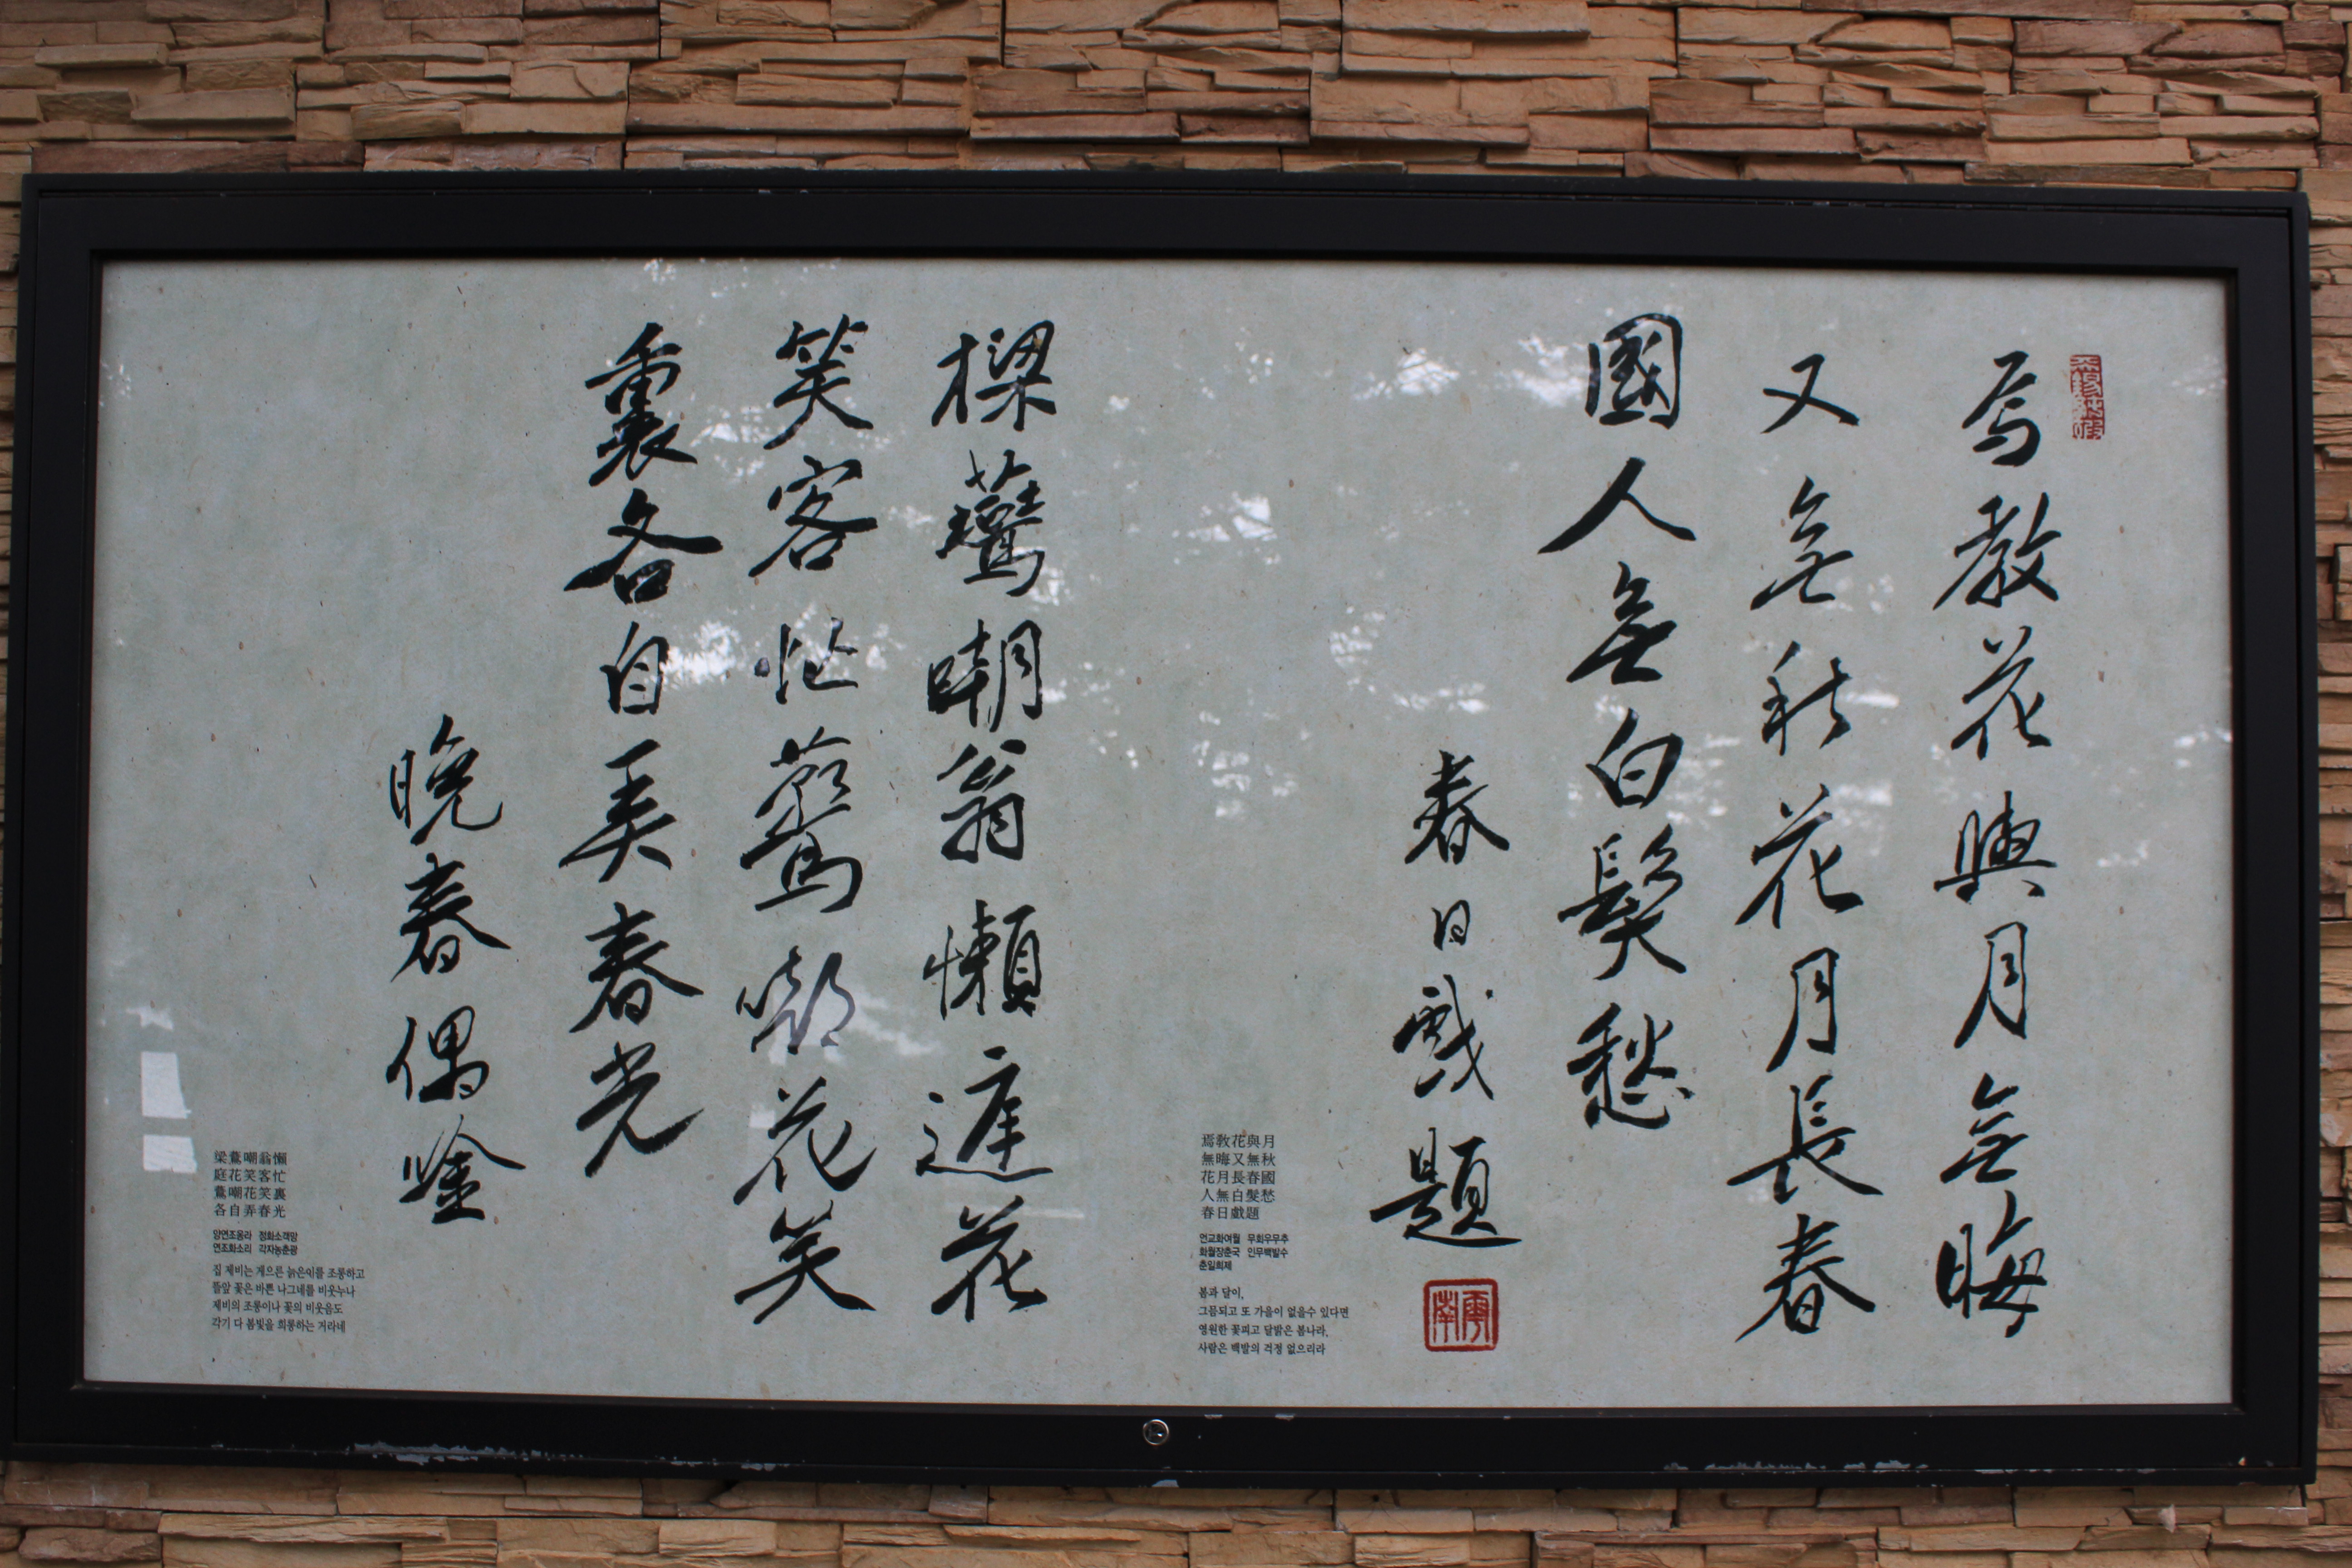 焉教花與月無晦
又無秋花月長春
國人無白髮愁
春日戲題
樑鷰嘲翁懶庭花
笑客忙鷰嘲花笑
裏各自弄春光
晩春偶唫
焉敎花與月
無晦又無秋
花月長春國
人無白髮愁
春日戱題
언교화여월 무회우무추
화월장춘국 인무백발수
춘일희제
봄과 달이,
그믐되고 또 가을이 없을수 있다면
영원한 꽃피고 달밝은 봄나라,
사람은 백발의 걱정 없으리라
梁鷰嘲翁懶
庭花笑客忙
鷰嘲花笑裏
各自弄春光
양연조옹라 정화소객망
연조화소리 각자농춘광
집 제비는 게으른 늙은이를 조롱하고
뜰앞 꽃은 바쁜 나그네를 비웃누나
제비의 조롱이나 꽃의 비웃음도
각기 다 봄빛을 희롱하는 거라네